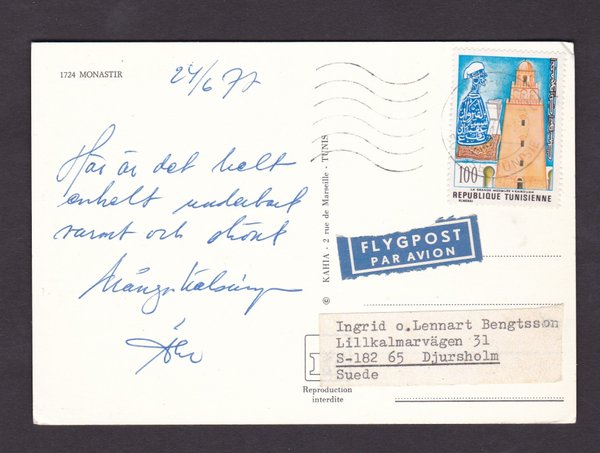 1724 MONASTIR
24/6 77
Här är det helt
enkelt underbart
varmt och skönt
Många hälsningar
© KAHIA - 2 rue de Marseille - TUNIS
100
LA GRANDE MOSQUÉE KAIROUAN
REPUBLIQUE TUNISIENNE
FLYGPOST
PAR AVION
Ingrid o.Lennart Bengtsson
Lillkalmarvägen 31
S-182 65 Djursholm
Suede
Reproduction
interdite